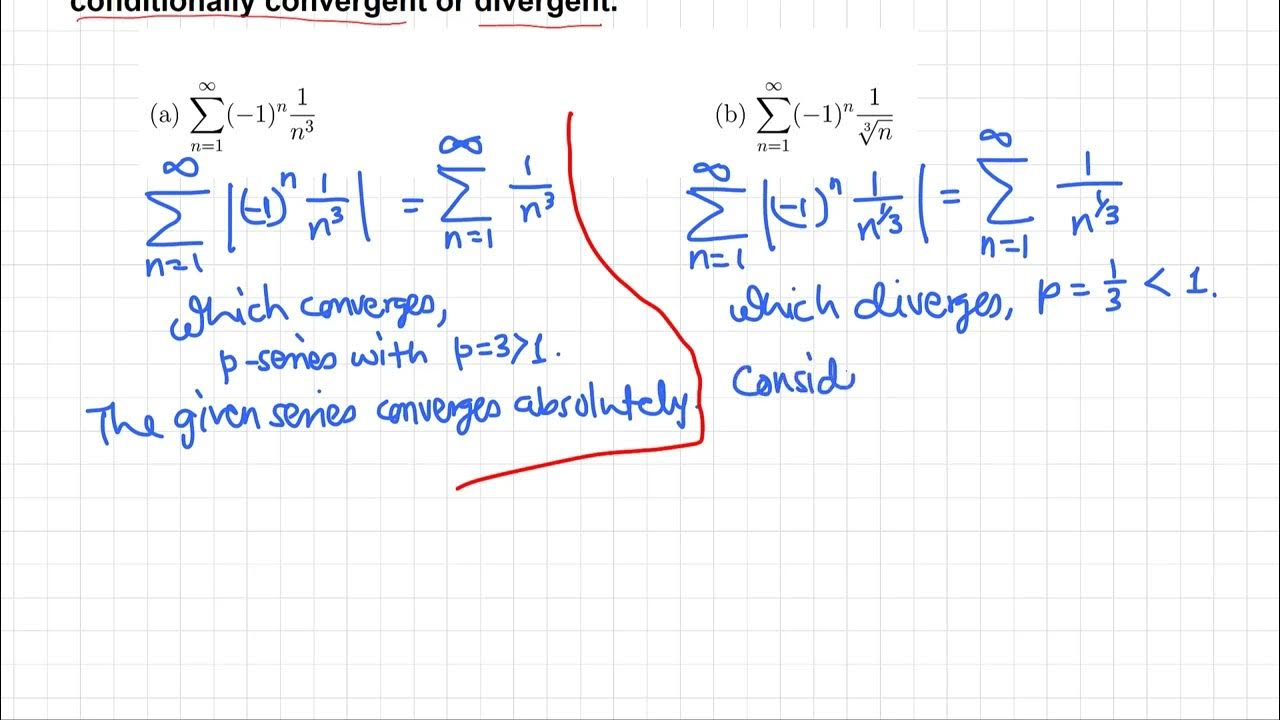 conditionally convergent or divergent.
(a) \sum_{n=1}^{\infty} (-1)^n \frac{1}{n^3}
\sum_{n=1}^{\infty} \left| (-1)^n \frac{1}{n^3} \right| = \sum_{n=1}^{\infty} \frac{1}{n^3}
which converges,
p-series with p=3>1.
The given series converges absolutely.
(b) \sum_{n=1}^{\infty} (-1)^n \frac{1}{\sqrt[3]{n}}
\sum_{n=1}^{\infty} \left| (-1)^n \frac{1}{n^{1/3}} \right| = \sum_{n=1}^{\infty} \frac{1}{n^{1/3}}
which diverges, p = \frac{1}{3} < 1.
Consid